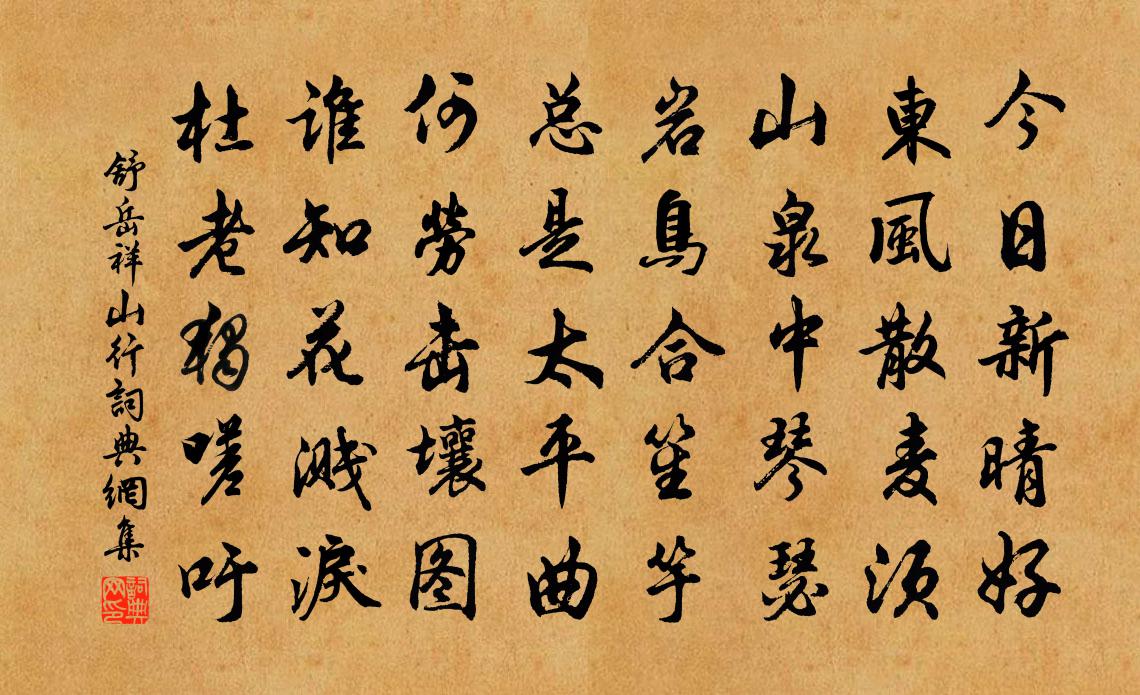 今日新晴好
東風散麦须
山泉中琴瑟
岩鳥合笙竽
总是太平曲
何勞击壤图
谁知花溅淚
杜老獨嗟吁
舒岳祥山行詞典網集
詞典網印